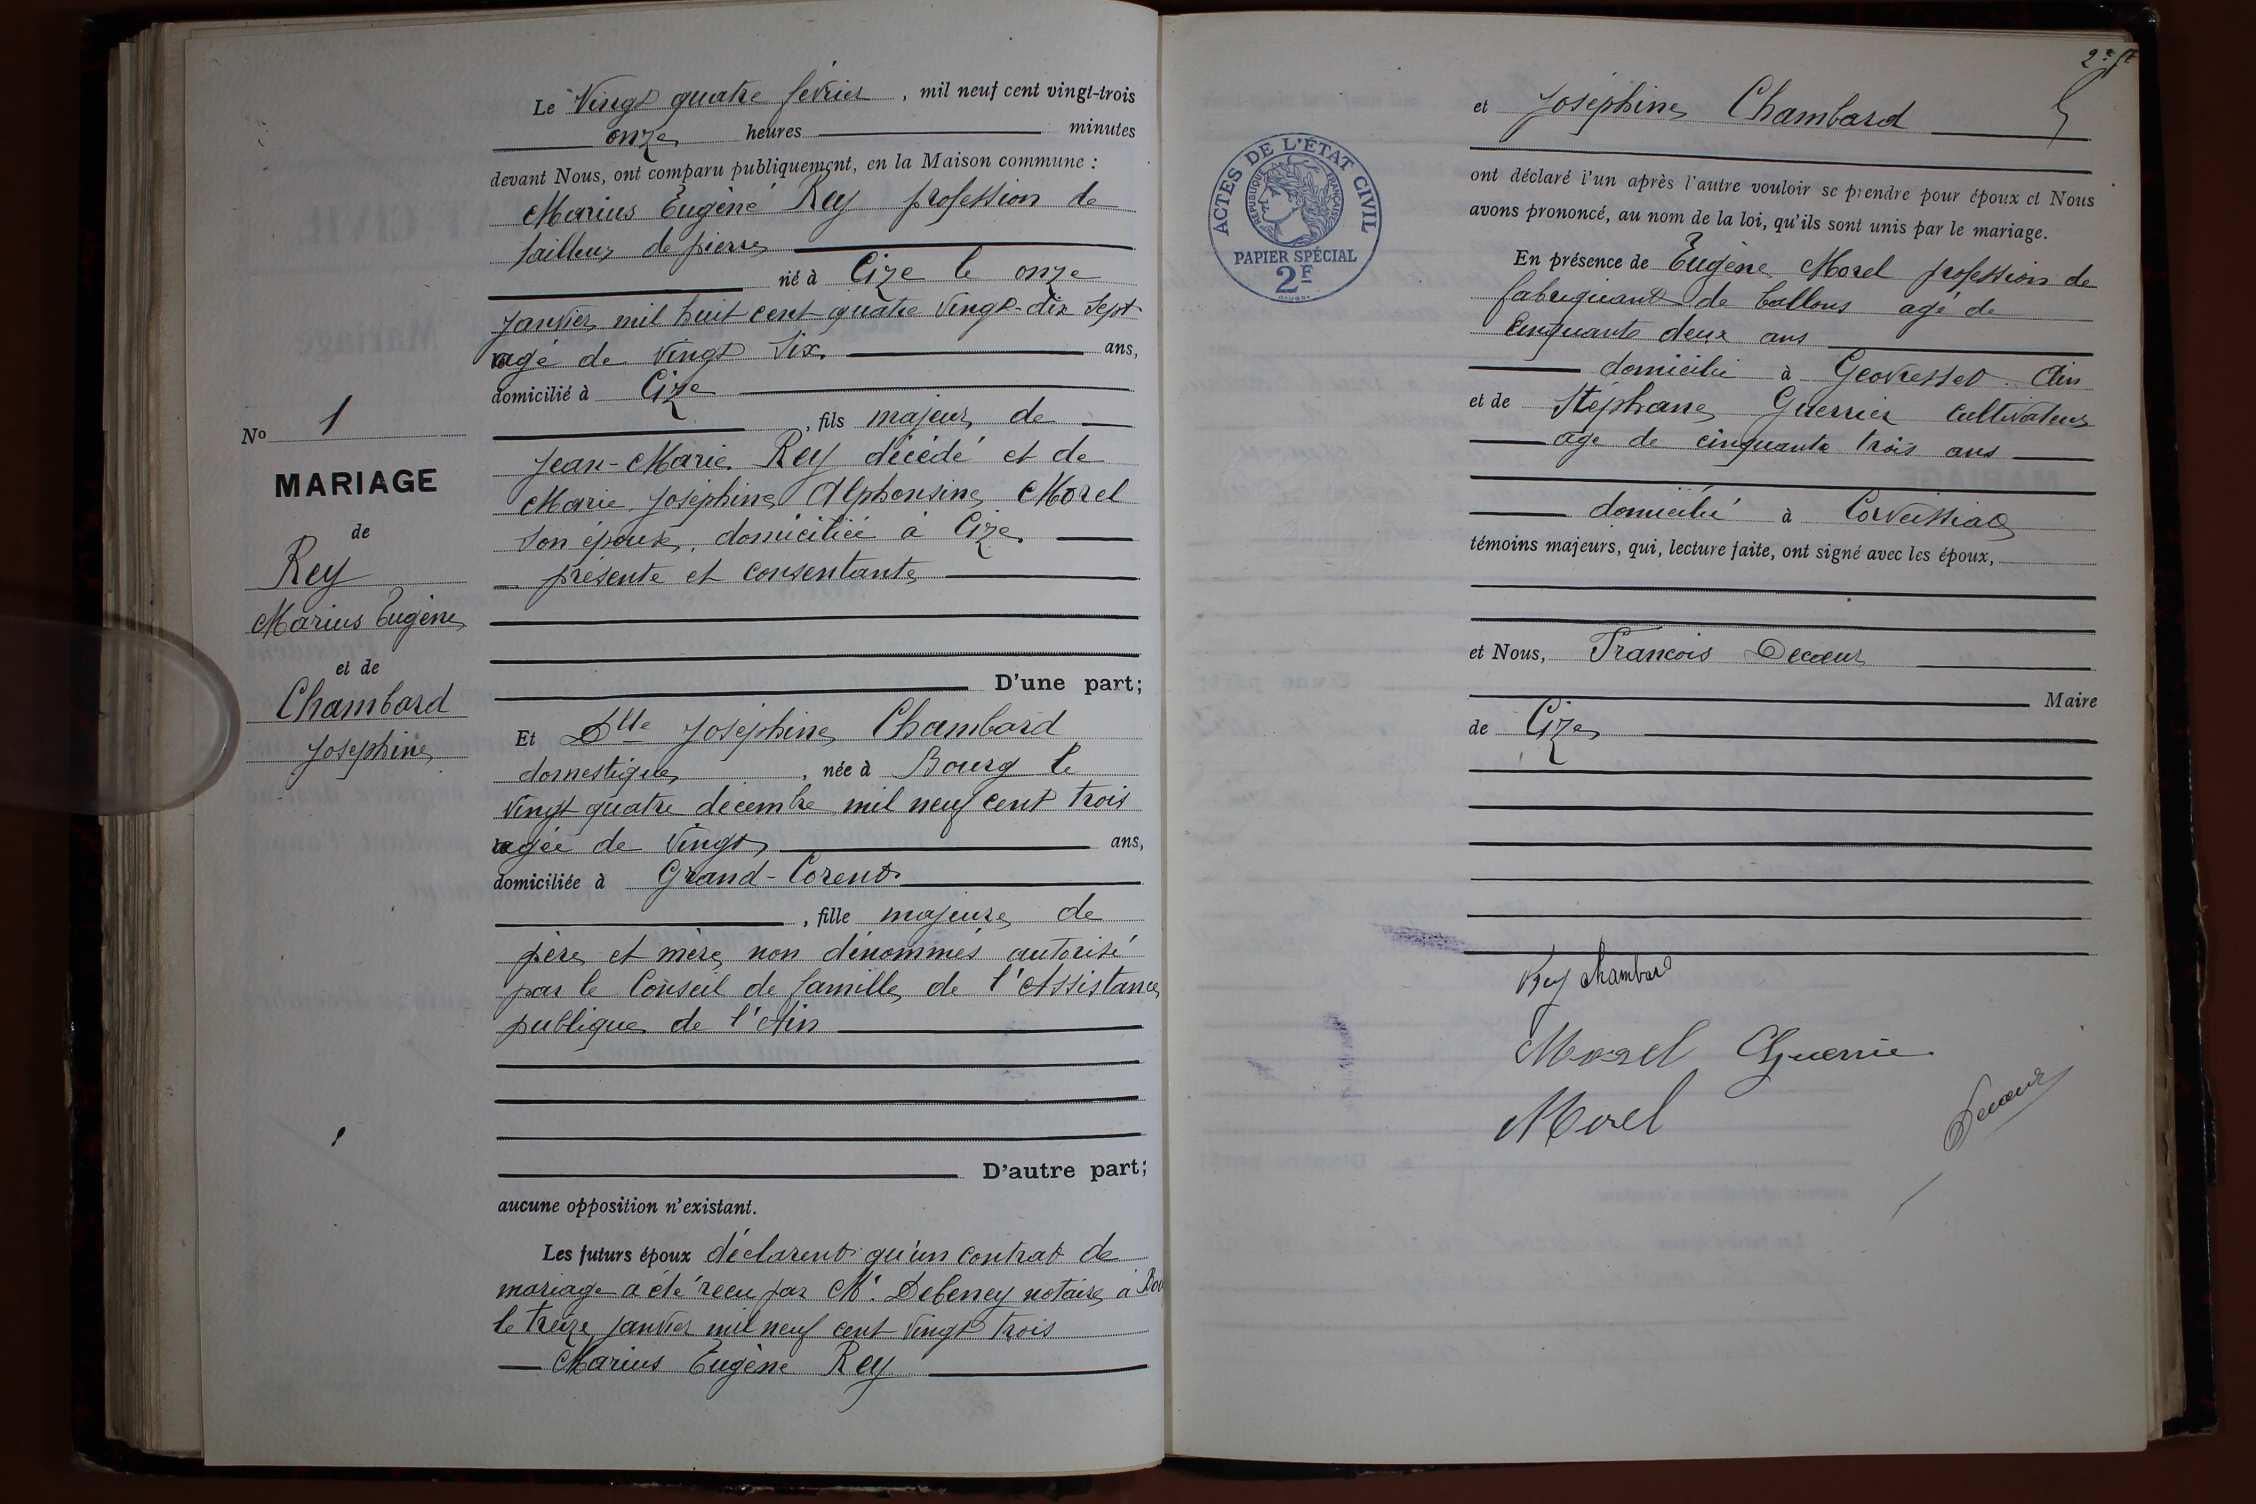 N° 1
MARIAGE
de
Rey
Marius Eugène
et de
Chambard
Joséphine
Le Vingt quatre février, mil neuf cent vingt-trois
onze heures minutes
devant Nous, ont comparu publiquement, en la Maison commune :
Marius Eugène Rey profession de
tailleur de pierre
né à Cize le onze
janvier mil huit cent quatre vingt-dix sept
agé de vingt six ans,
domicilié à Cize
, fils majeur de
Jean-Marie Rey décédé et de
Marie Joséphine Alphonsine Morel
son épouse, domiciliée à Cize
présente et consentante
D'une part;
Et Dlle Joséphine Chambard
domestique, née à Bourg le
vingt quatre décembre mil neuf cent trois
agée de vingt ans,
domiciliée à Grand-Corent
, fille majeure de
père et mère non dénommés autorisé
par le Conseil de famille de l'Assistance
publique de l'Ain
D'autre part;
aucune opposition n'existant.
Les futurs époux déclarent qu'un contrat de
mariage a été recu par Me. Debeney notaire à Bou
le treize janvier mil neuf cent vingt trois
Marius Eugène Rey
et Joséphine Chambard
ACTES DE L'ÉTAT CIVIL
RÉPUBLIQUE FRANÇAISE
PAPIER SPÉCIAL
2F
ont déclaré l'un après l'autre vouloir se prendre pour époux et Nous
avons prononcé, au nom de la loi, qu'ils sont unis par le mariage.
En présence de Eugène Morel profession de
fabriquant de ballons agé de
cinquante deux ans
domicilié à Geovresset Ain
et de Stéphane Guerrier cultivateur
age de cinquante trois ans
domicilié à Corveissiat
témoins majeurs, qui, lecture faite, ont signé avec les époux,
et Nous, Francois Decœur
Maire
de Cize
Rey Chambard
Morel Guerrie
Morel
Decœur